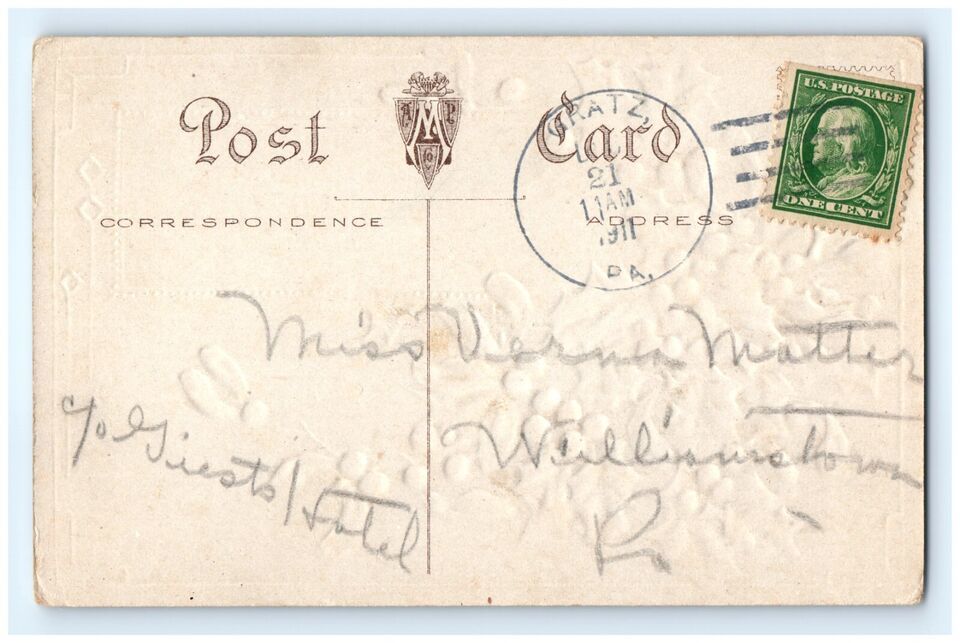 Post Card
A M P
CORRESPONDENCE
ADDRESS
GRATZ,
21
11 AM
1911
PA.
U.S. POSTAGE
ONE CENT
Miss Verna Matter
Williamstown
c/o Giests Hotel
Pa